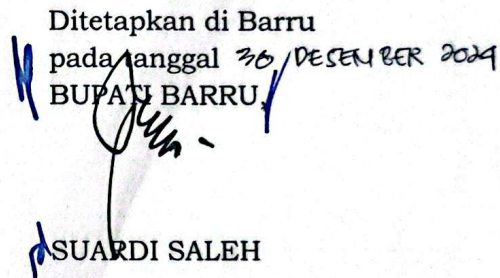 Ditetapkan di Barru
pada tanggal 30 DESEMBER 2024
BUPATI BARRU,
SUARDI SALEH